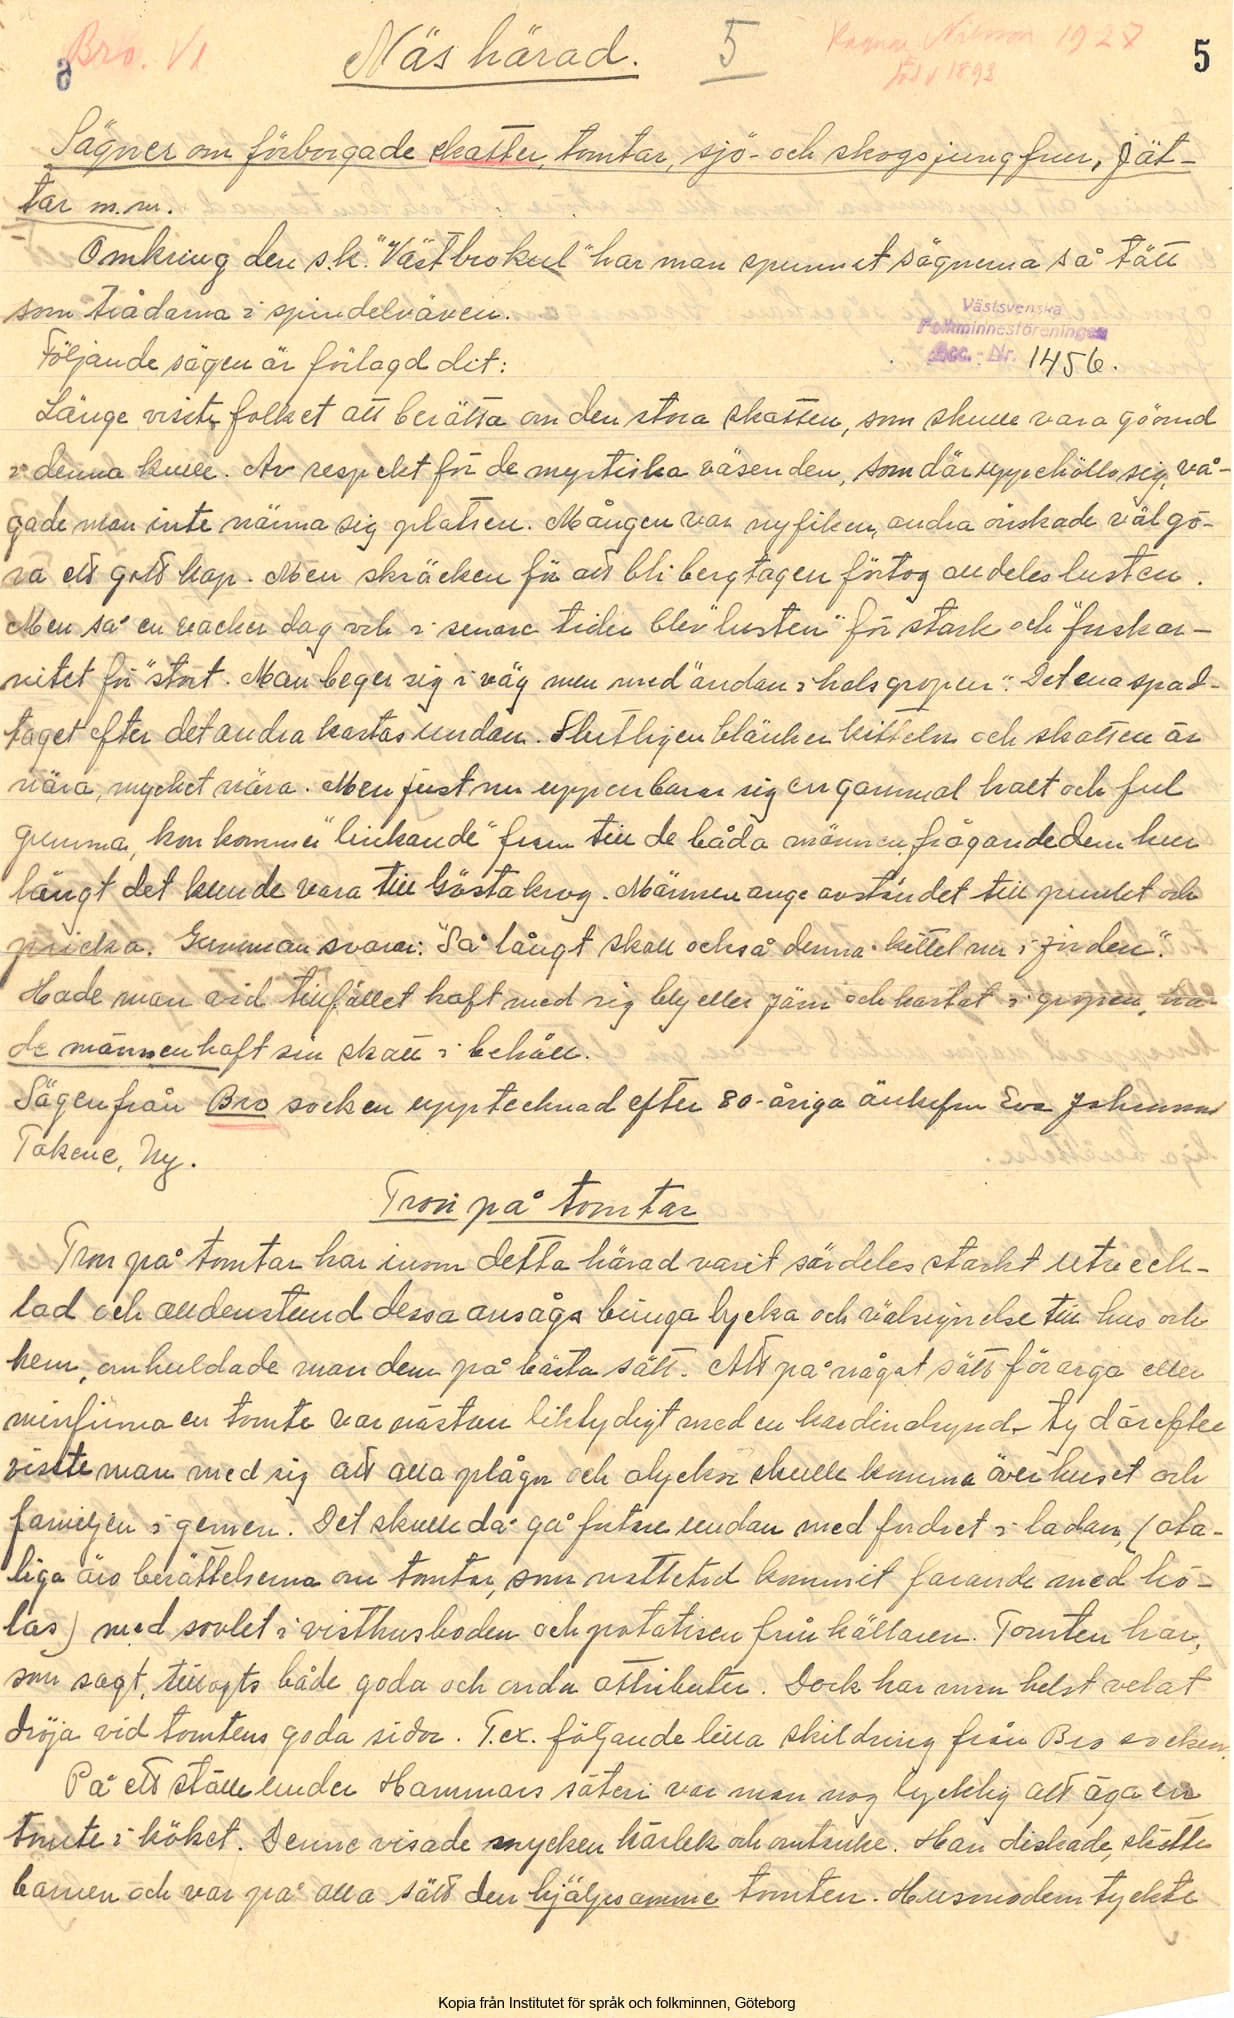 Bro. VI
Näs härad. 5
Ragnar Nilsson 1927
född 1893
5
6
Sägner om förborgade skatter, tomtar, sjö- och skogsjungfrur, jät-
tar m.m.
Omkring den s.k. "Västbrokul" har man spunnit sägnerna så tätt
som trådarna i spindelväven.
Västsvenska
Folkminnesföreningen
Acc. - Nr. 1456.
Följande sägen är förlagd dit:
Länge visste folket att berätta om den stora skatten, som skulle vara gömd
i denna kulle. Av respekt för de mystiska väsenden, som där uppehöllo sig, vå-
gade man inte närma sig platsen. Mången var nyfiken, andra önskade väl gö-
ra ett gott kap. Men skräcken för att bli bergtagen förtog alldeles lusten.
Men så en vacker dag och i senare tider blev "lusten" för stark och "friskar-
nitet för" stort. Man beger sig i väg men med "andan i halsgropen". Det ena spad-
taget efter det andra kastas undan. Slutligen blänker kitteln och skatten är
nära, mycket nära. Men just nu uppenbarar sig en gammal halt och ful
gumma, hon kommer "linkande" fram till de båda männen frågande dem hur
långt det kunde vara till Gösta krog. Männen ange avståndet till punkt och
pricka. Gumman svarar: "Så långt skall också denna kittel ner i jorden".
Hade man vid tillfället haft med sig bly eller järn och kastat i gropen, ha-
de männen haft sin skatt i behåll.
Sägen från Bro socken upptecknad efter 80-åriga änkefru Eva Johansson
Takene, Ny.
Tron på tomtar
Tron på tomtar har inom detta härad varit särdeles starkt utveck-
lad och alldenstund dessa ansågs bringa lycka och välsignelse till hus och
hem, omhuldade man dem på bästa sätt. Att på något sätt förarga eller
misfirma en tomte var nästan liktydigt med en kardinalsynd - ty därefter
visste man med sig att alla plågor och olyckor skulle komma över huset och
familjen i gemen. Det skulle då gå fortare undan med fodret i ladan, (ota-
liga äro berättelserna om tomtar, som nattetid kommit farande med hö-
lass) med sovlet i visthusboden och potatisen från källaren. Tomten har,
som sagt, tillagts både goda och onda attributer. Dock har man helst velat
dröja vid tomtens goda sidor. T.ex. följande lilla skildring från Bro socken.
På ett ställe under Hammars säteri var man nog lycklig att äga en
tomte i köket. Denne visade mycken kärlek och omtanke. Han diskade, skötte
barnen och var på alla sätt den hjälpsamme tomten. Husmodern tyckte
Kopia från Institutet för språk och folkminnen, Göteborg